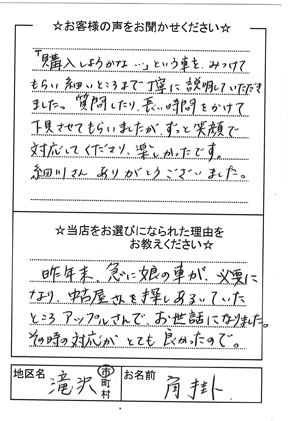 ☆お客様の声をお聞かせください☆
「購入しようかな…」という車を、みつけて
もらい細いところまで丁寧に説明していただき
ました。質問したり、長い時間をかけて
下見させてもらいましたが、ずっと笑顔で
対応してくださり、楽しかったです。
細川さん ありがとうございました。
☆当店をお選びになられた理由を
お教えください☆
昨年末、急に娘の車が、必要に
なり、中古屋さんを探しあるいていた
ところアップルさんで、お世話になりました。
その時の対応がとても良かったので。
地区名 滝沢 市町村 お名前 角掛